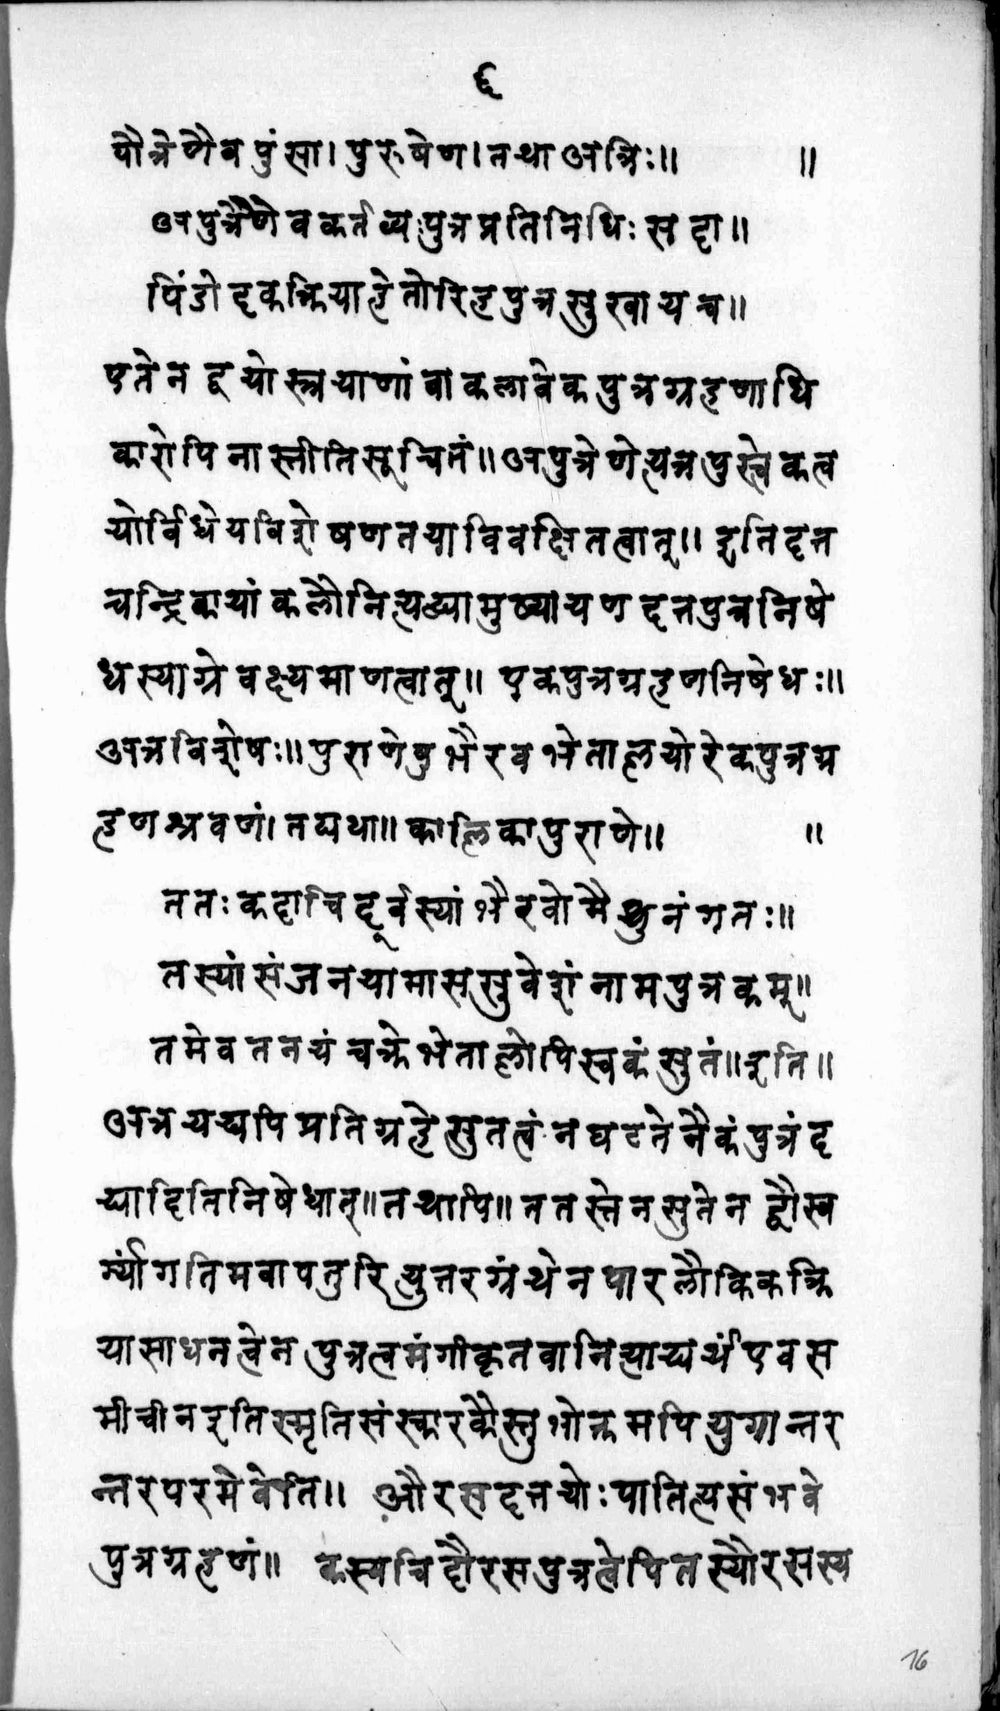 ६
पौत्रेणैव पुंसा। पुरुषेण। तथा अत्रिः॥ ॥
अपुत्रेणैव कर्तव्यः पुत्रप्रतिनिधिः सदा॥
पिंडोदकक्रियाहेतोरिह पुत्रसुखाय च॥
एतेन द्वयोस्त्रयाणां वा कलावेकपुत्रग्रहणाधि
कारोपि नास्तीति सूचितं॥ अपुत्रेणेत्यत्र पुंस्त्वेकत्व
योर्विधेयविशेषणतया विवक्षितत्वात्॥ इति दत्त
चन्द्रिकायां कलौ नित्यद्व्यामुष्यायण दत्तपुत्रनिषे
धस्याग्रे वक्ष्यमाणत्वात्॥ एकपुत्रग्रहणनिषेधः॥
अत्र विशेषः॥ पुराणेषु भैरवभेतालयोरेकपुत्रग्र
हणश्रवणं। तद्यथा॥ कालिकापुराणे॥ ॥
ततः कदाचिदूर्वस्यां भैरवो मैथुनं गतः॥
तस्यां संजनयामास सुवेशं नाम पुत्रकम्॥
तमेव तनयं चक्रे भेतालोपि स्वकं सुतं॥ इति॥
अत्र यद्यपि प्रतिग्रहे सुतत्वं न घटते नैकं पुत्रं द
द्यादिति निषेधात्॥ तथापि॥ ततस्तेन सुतेन द्वौ स्व
र्ग्यां गतिमवापतुरित्युत्तरग्रंथेन पारलौकिकक्रि
यासाधनत्वेन पुत्रत्वमंगीकृतवानित्याद्यर्थ एव स
मीचीन इति स्मृतिसंस्कारकौस्तुभोक्तमपि युगान्तर
न्तरपरमेवेति॥ औरसदत्तयोः पातित्यसंभवे
पुत्रग्रहणं॥ कस्यचिदौरसपुत्रत्वेपि तस्यौरसस्य
16